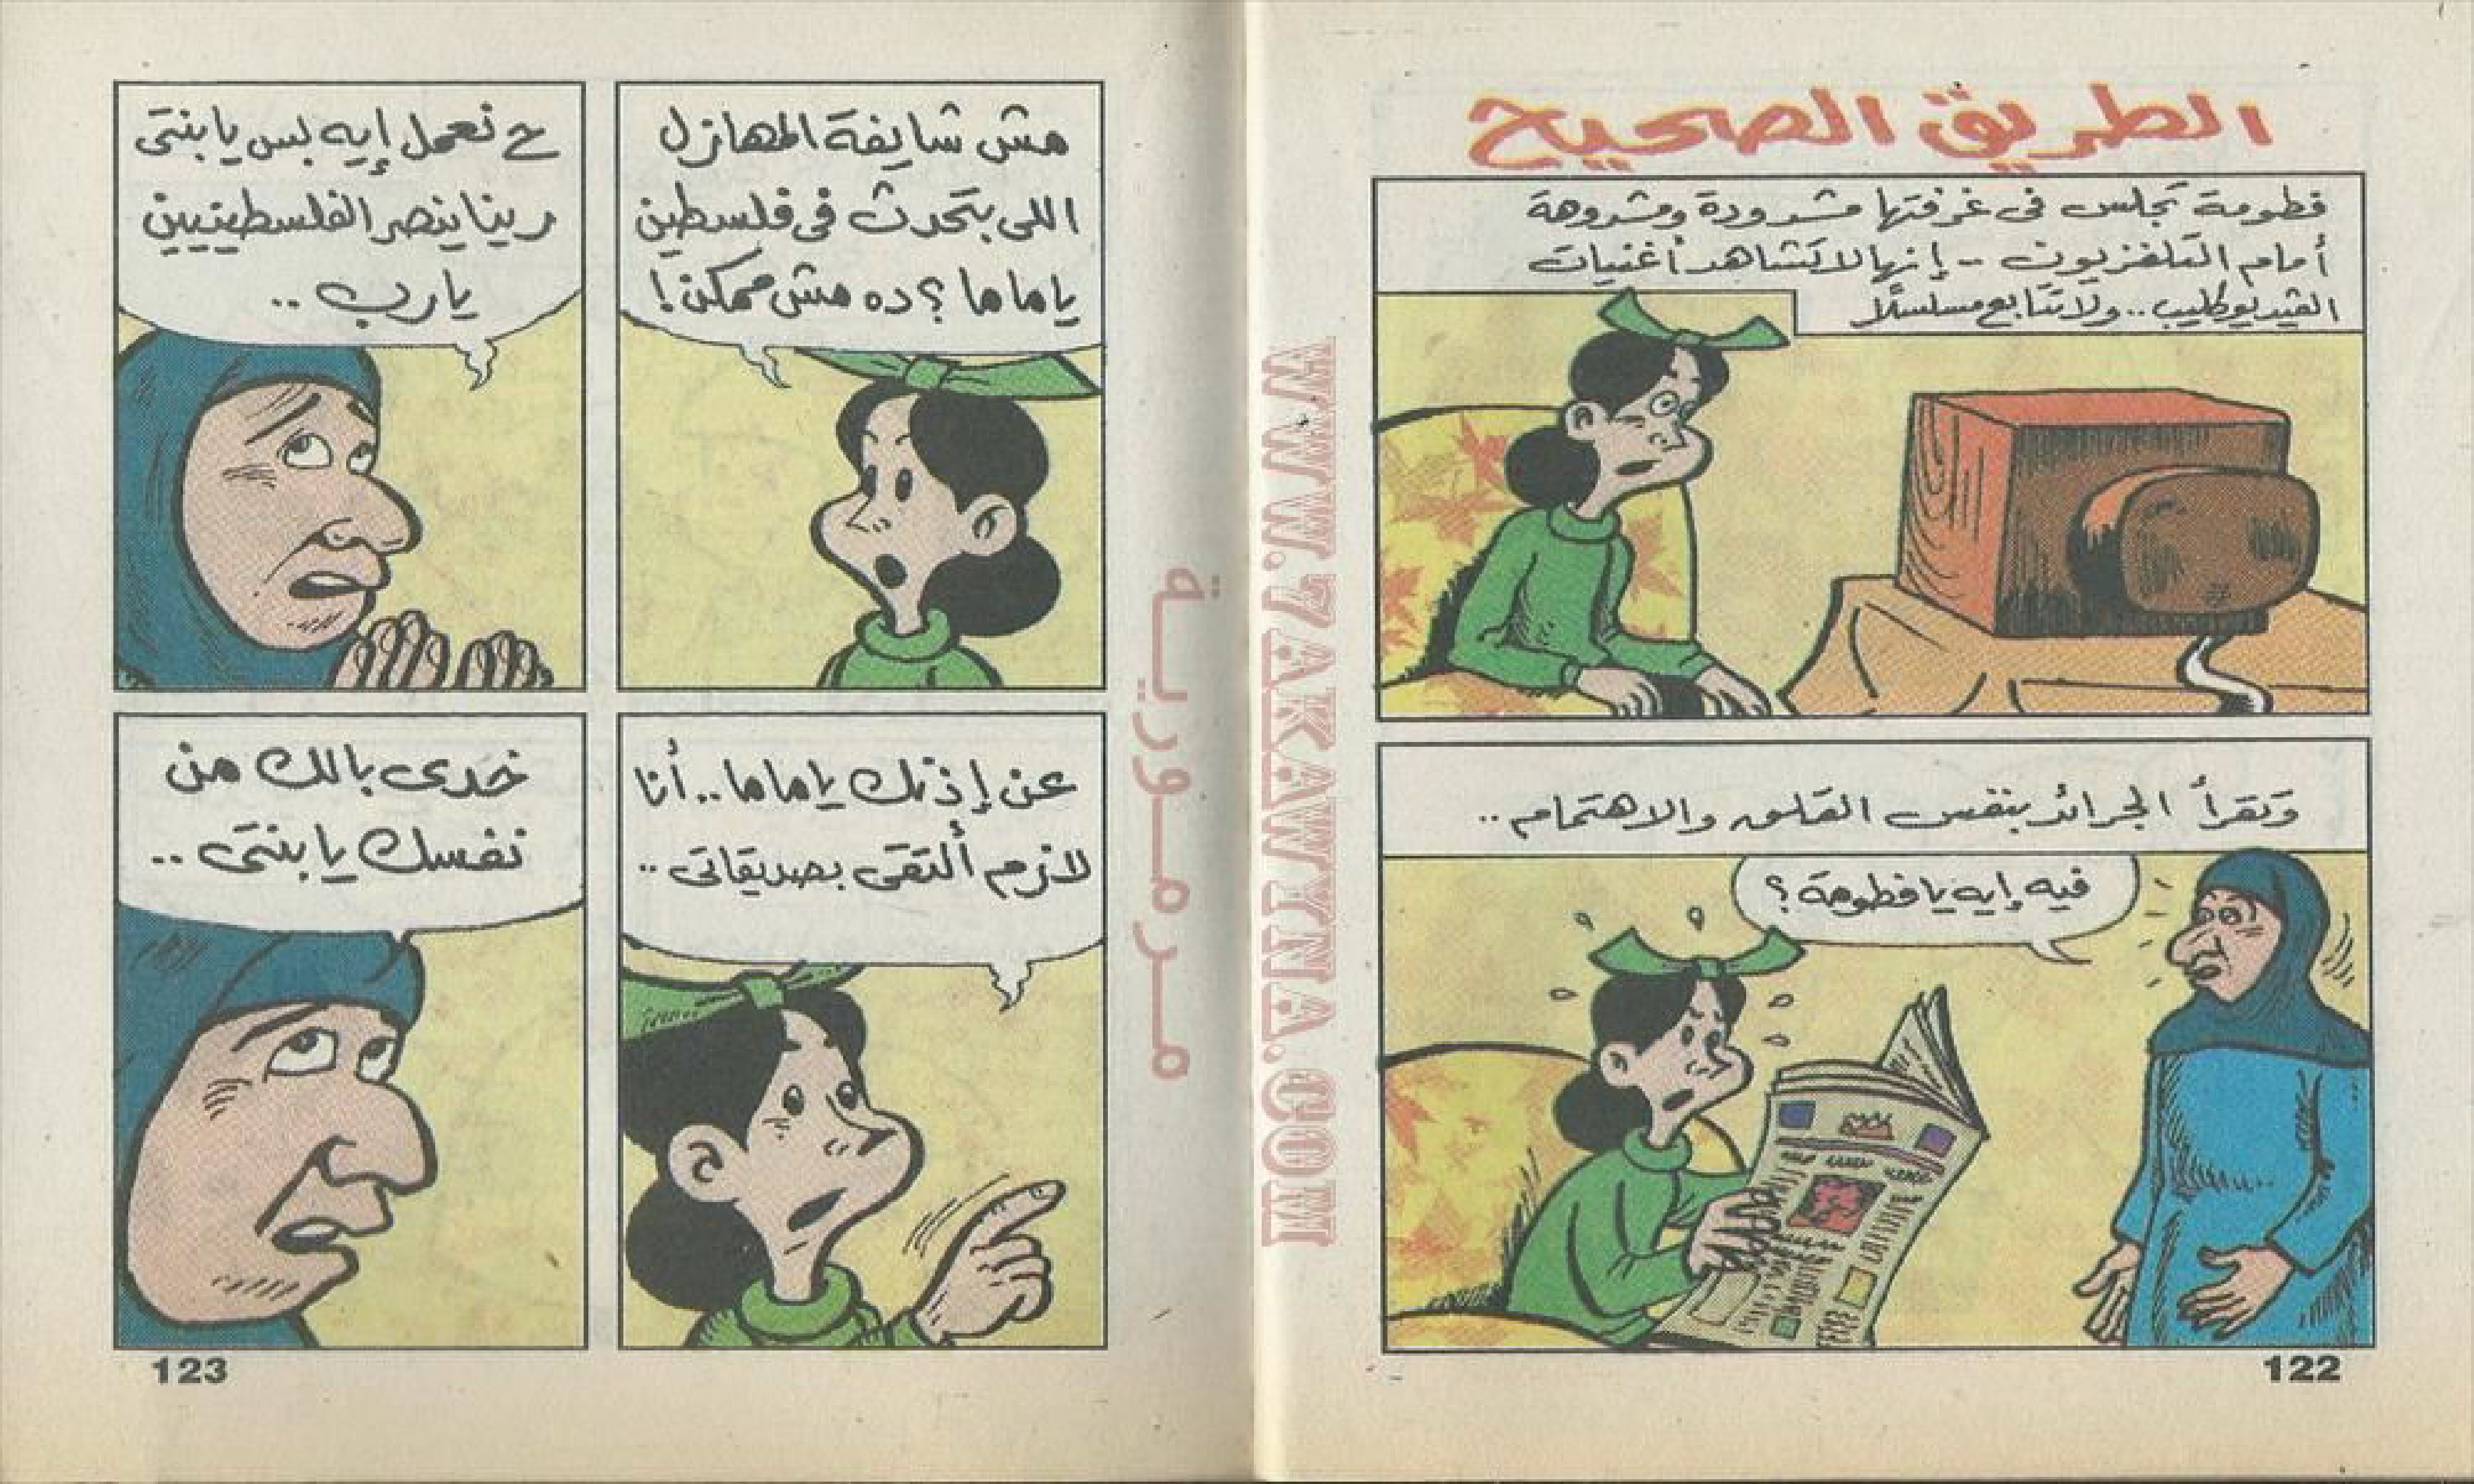 الطريق الصحيح
فطومة تجلس فى غرفتها مشدودة ومشدوهة
أمام التلفزيون -- إنها لا تشاهد أغنيات
الفيديو كليب .. ولا تتابع مسلسلاً
وتقرأ الجرائد بنفس القلق والاهتمام ..
فيه إيه يا فطومة ؟
122
WWW.7AKAWYINA.COM
مرمورية
مش شايفة المهازل
اللى بتحدث فى فلسطين
يا ماما ؟ ده مش ممكن !
ح نعمل إيه بس يا بنتى
ربنا ينصر الفلسطينيين
يارب ..
عن إذنك يا ماما .. أنا
لازم ألتقى بصديقاتى ..
خدى بالك من
نفسك يا بنتى ..
123